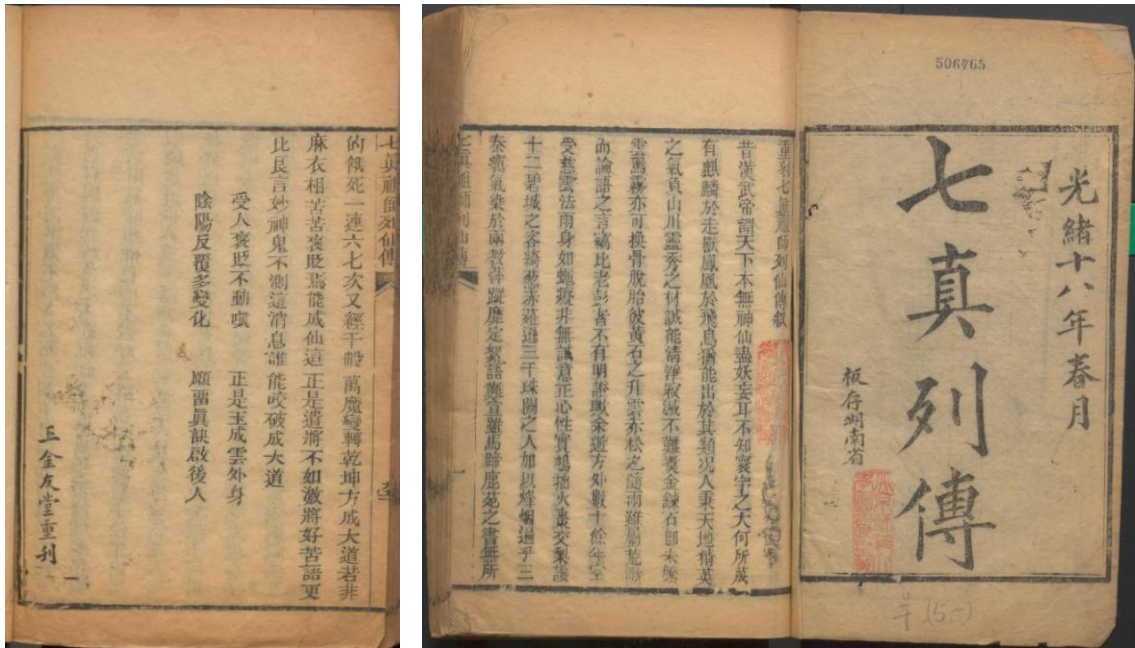 七真祖師列仙傳
的餓死一連六七次又經千般萬魔變轉乾坤方成大道若非
麻衣相苦苦褒貶焉能成仙這正是遣將不如激將好苦語更
比良言妙神鬼不測這消息誰能咬破成大道
受人褒貶不動嗔 正是玉成雲外身
陰陽反覆多變化 願留眞訣啟後人
王金友堂重刋
506765
光緒十八年春月
七真列傳
板存湖南省
重刻七真祖師列仙傳叙
昔漢武帝謂天下本無神仙盡妖妄耳不知寰宇之大何所蔑
有麒麟於走獸鳳凰於飛鳥猶能出於其類况人秉天地精英
之氣負山川靈秀之材誠能清淨寂滅不難養金鍊石即未騰
雲駕霧亦可換骨脫胎彼黃石之升雲赤松之隨雨雖屬
而論語之言竊比老彭者不有明證歟余遊方外數十餘年空
受慈雲法雨身如蠅癡非無誠意正心性實鳩拙火棗交梨謾
十二碧城之客綺葱赤薤追三千珠闕之人加以烽烟遍乎三
秦癘氣染於兩教萍蹤靡定絮語難宣雖馬蹄鹿苑之書無所
七真祖師列仙傳
一